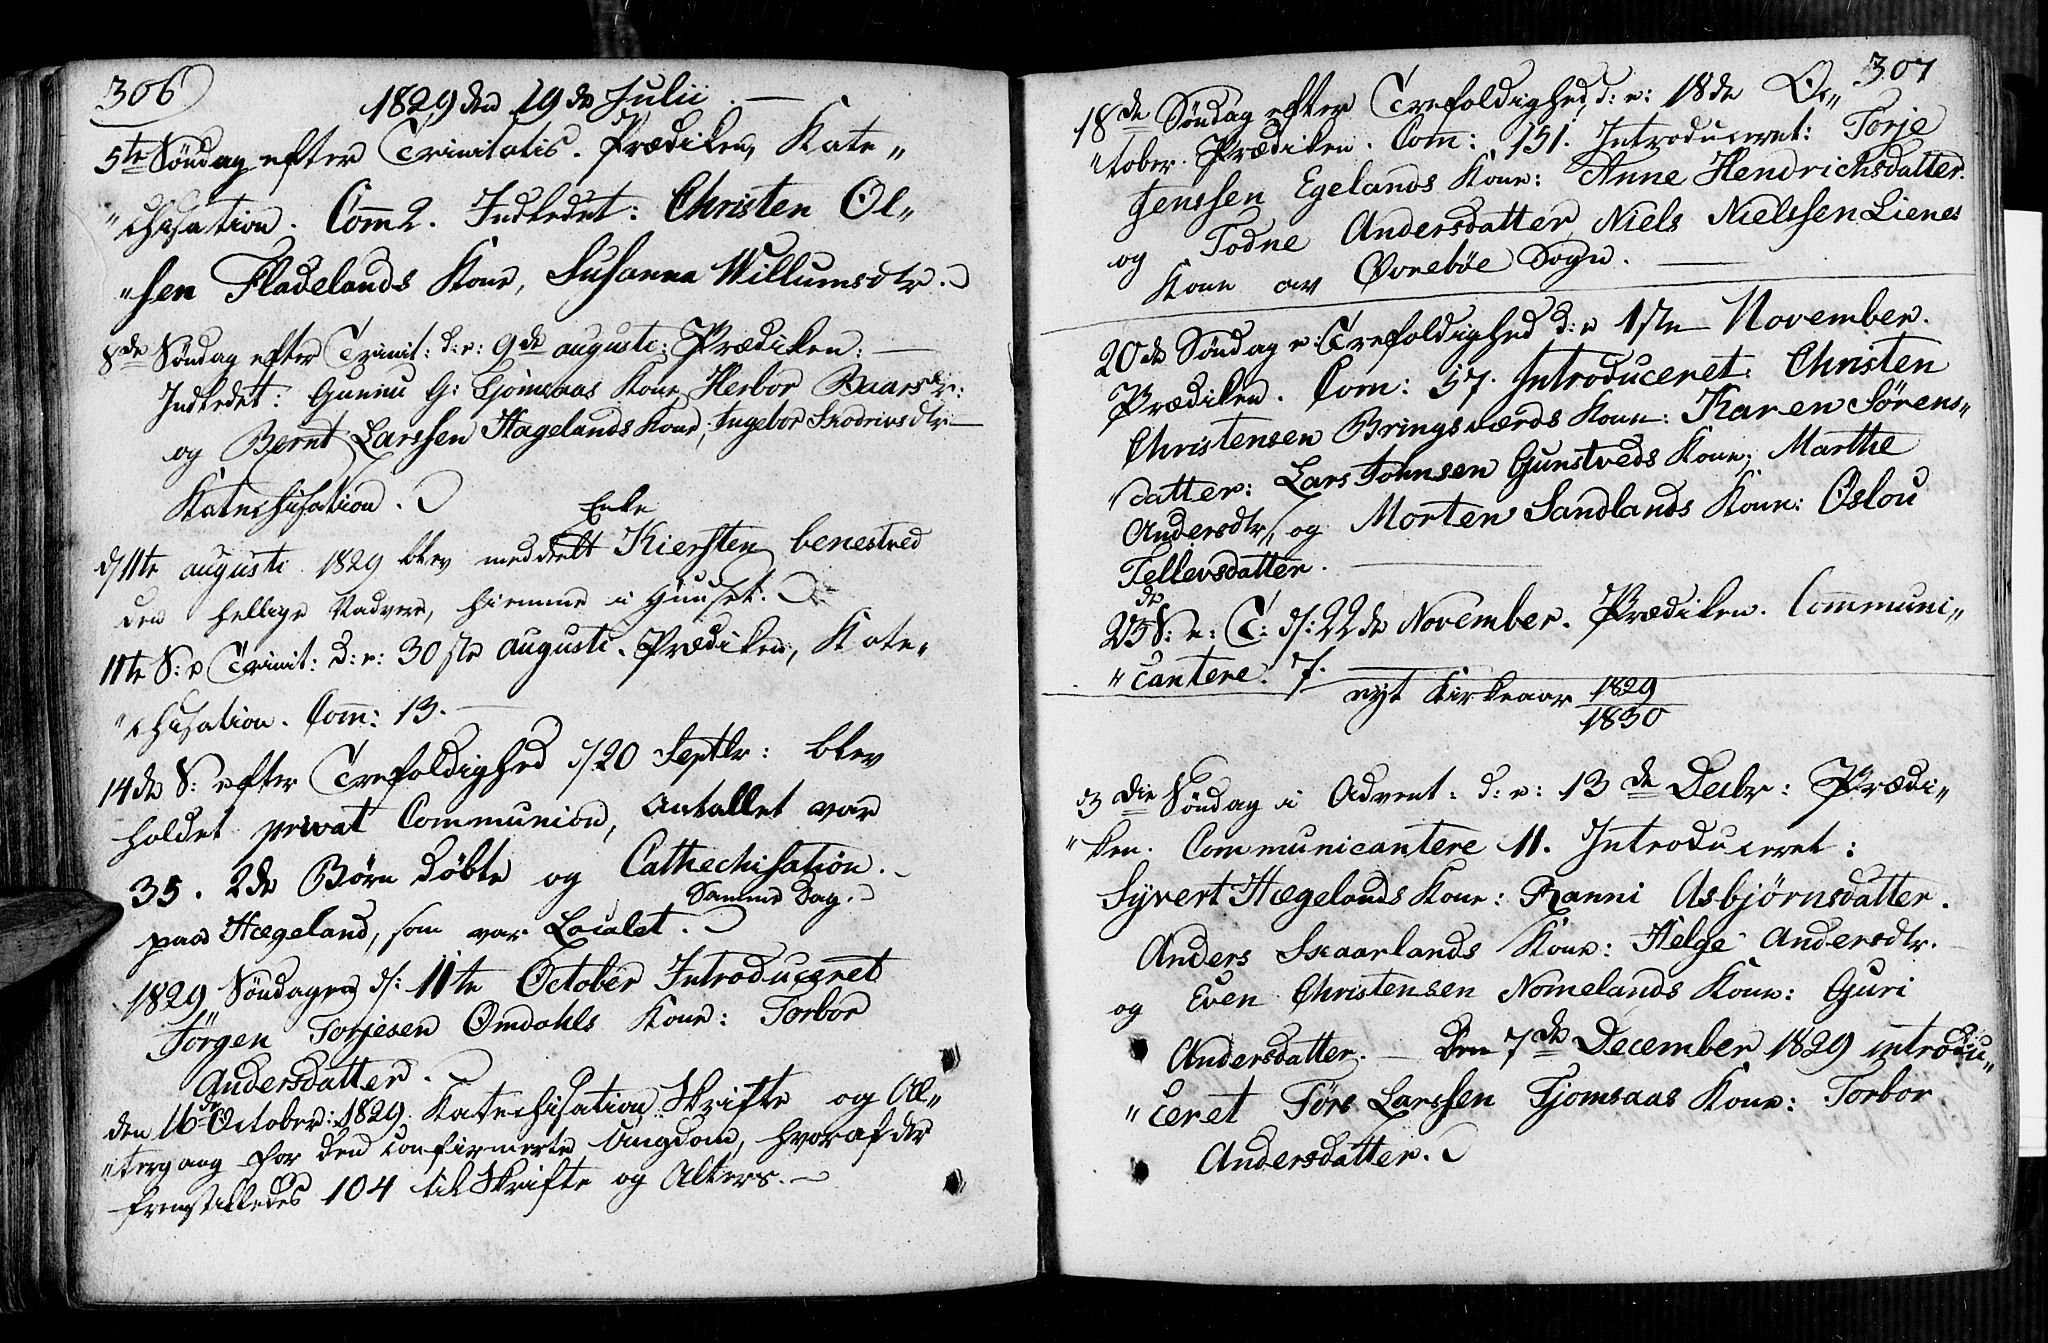 306
1829 den 19de Julii. —
5te Søndag efter Trinitatis. Prædiken, Kate„
„chisation. Com̅ 2. Indledet: Christen Ol„
„sen Fladelands Kone, Susanna Willumsdtr.
8de Søndag efter Trinit: d: e: 9de augusti: Prædiken: —
Indledet: Gunnu G: Tjomsaas Kone Herbor Baarsdtr:
og Bernt Larssen Hagelands Kone, Ingebor Skodrinsdtr —
Katechisation.
Enke
d/11te augusti 1829 blev meddelt Kiersten benestved
den hellige Nadvere, hiemme i Huuset.
11te S: e Trinit: d: e: 30ste augusti. Prædiken, Kate„
„chisation. Com̅: 13. —
14de S: efter Trefoldighed d/20 Septbr: blev
holdet privat Communion, Antallet var
35. 2de Børn døbte og Cathechisation.
Samme Dag.
paa Hægeland, som var Localet.
1829 Søndagen d/: 11te October Introduceret
Jörgen Torjesen Omdahls Kone: Torbor
Andersdatter.
den 16de October: 1829. Katechisation. Skrifte og Al„
„tergang for den confirmerte Ungdom, hvoraf der
fremstilledes 104 til Skrifte og Alters. —
307
18de Søndag efter Trefoldighed, d: e: 18de Oc„
„tober. Prædiken. Com: 151. Introduceret: Torje
Jenssen Egelands Kone: Anne Hendrichsdatter.
og Todne Andersdatter, Niels Nielssen Lienes
Kone av Øvrebøe Sogn. —
20de Søndag e: Trefoldighed d: e 1ste November.
Prædiken. Com: 57. Introduceret: Christen
Christensen Bringsværds Kone: Karen Sörens„
„datter: Lars Johnsen Gunstveds Kone, Marthe
Andersdtr, og Morten Sandlands Kone: Oslou
Tellevsdatter. —
23de S: e: T: d/: 22de November. Prædiken. Com̅uni„
„cantere. 7.
nyt Kirkeaar 1829
1830
3die Søndag i Advent: d: e: 13de Decbr: Prædi„
„ken. Communicantere 11. Introduceret:
Syvert Hægelands Kone: Ranni Asbjørnsdatter.
Anders Skaarlands Kone: Helge Andersdtr.
og Even Christensen Nomelands Kone: Guri
Andersdatter. — Den 7de December 1829 introdu„
„ceret Törs Larssen Tjomsaas Kone: Torbor
Andersdatter.